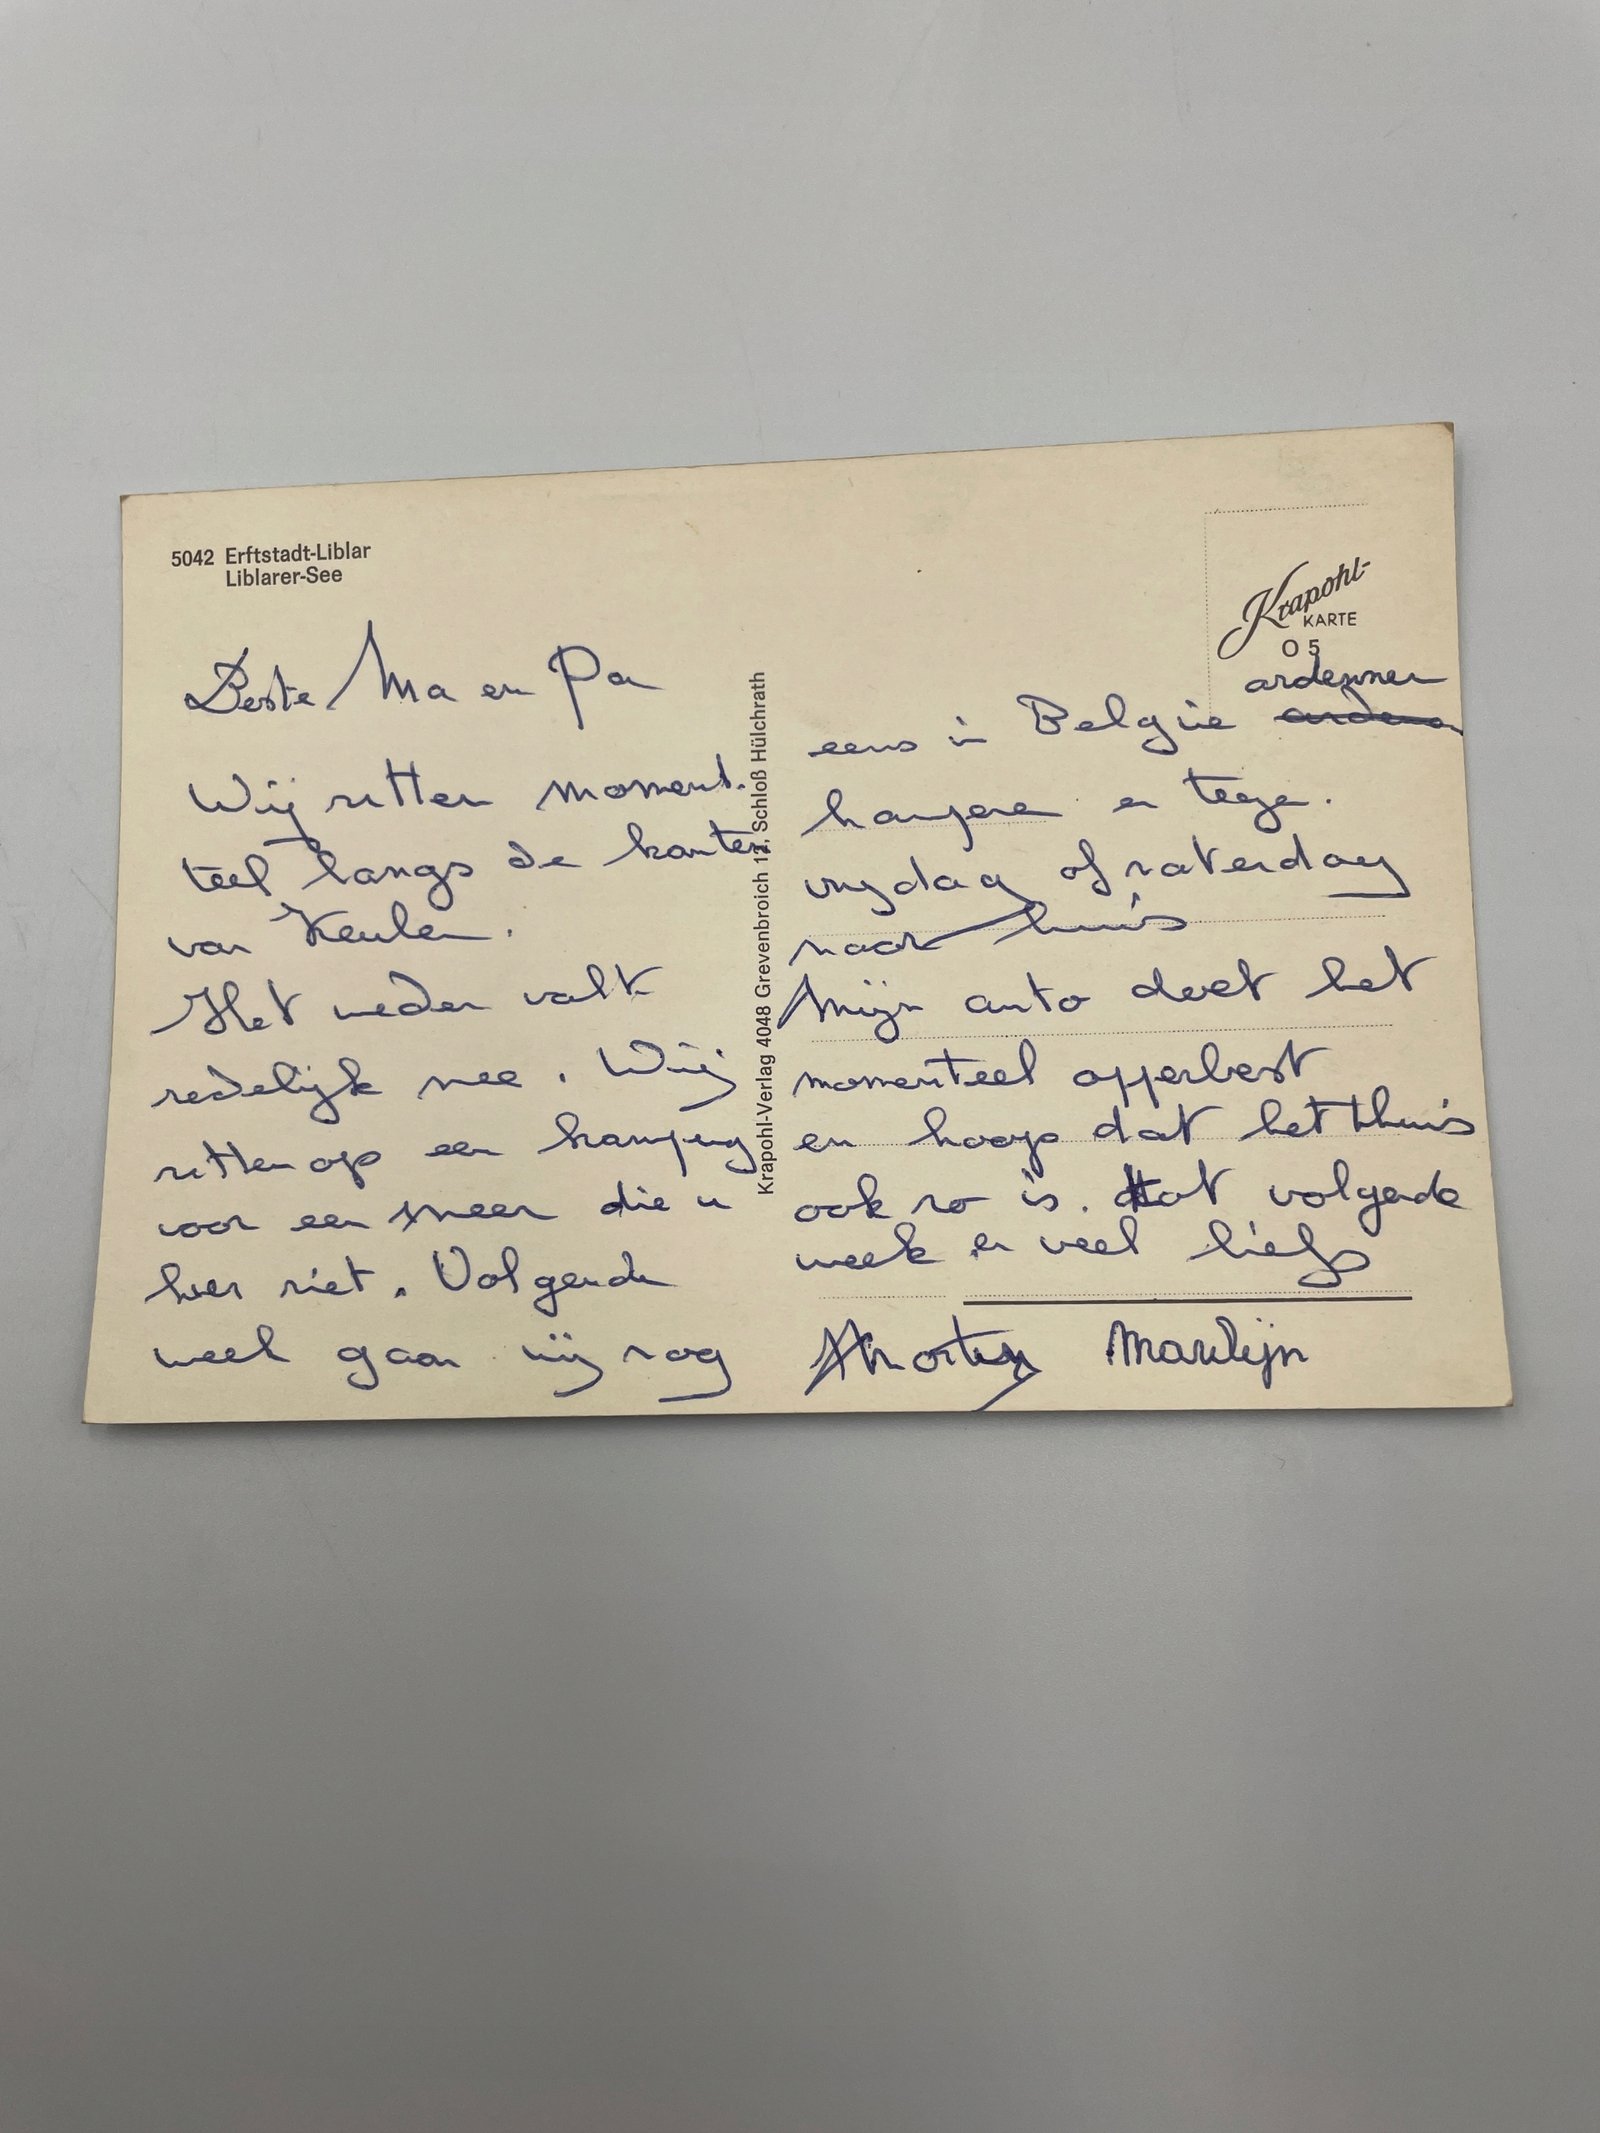 5042 Erftstadt-Liblar
Liblarer-See
Beste Ma en Pa
Wij zitten moment.
teel langs de kanten
van Keulen.
Het weder valt
redelijk mee. Wij
zitten op een kamping
voor een meer die u
hier ziet. Volgende
week gaan wij nog
Krapohl-Verlag 4048 Grevenbroich 12, Schloß Hülchrath
Krapohl-
KARTE
O 5
ardennen
eens in Belgie
kampere en tege.
vrijdag of zaterdag
naar huis
Mijn auto doet het
momenteel opperbest
en hoop dat het thuis
ook zo is. tot volgende
week en veel liefs
Marlijn